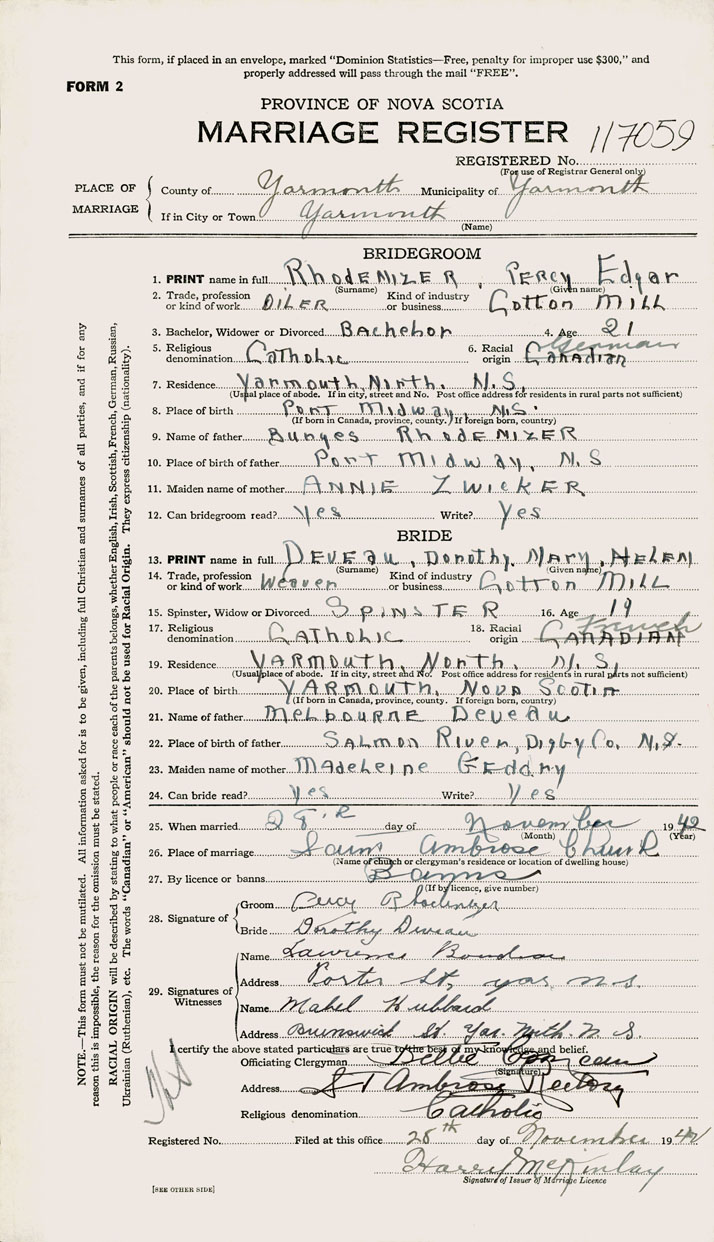 This form, if placed in an envelope, marked "Dominion Statistics—Free, penalty for improper use $300," and
properly addressed will pass through the mail "FREE".
FORM 2
PROVINCE OF NOVA SCOTIA
MARRIAGE REGISTER 117059
REGISTERED No.
(For use of Registrar General only)
PLACE OF MARRIAGE
County of Yarmouth Municipality of Yarmouth
If in City or Town Yarmouth
(Name)
BRIDEGROOM
1. PRINT name in full RhodENIZER, PERCY Edgar
(Surname) (Given name)
2. Trade, profession or kind of work OILER Kind of industry or business Cotton MILL
3. Bachelor, Widower or Divorced Bachelor 4. Age 21
5. Religious denomination Catholic 6. Racial origin Canadian German
7. Residence Yarmouth North. N.S.
(Usual place of abode. If in city, street and No. Post office address for residents in rural parts not sufficient)
8. Place of birth Port Midway, N.S.
(If born in Canada, province, county. If foreign born, country)
9. Name of father Burges RhodENIZER
10. Place of birth of father Port Midway, N.S
11. Maiden name of mother ANNIE ZWICKER
12. Can bridegroom read? Yes Write? Yes
BRIDE
13. PRINT name in full DEVEau, Dorothy. Mary, HELEN
(Surname) (Given name)
14. Trade, profession or kind of work Weaver Kind of industry or business Cotton MILL
15. Spinster, Widow or Divorced SPINSTER 16. Age 19
17. Religious denomination CATHOLIC 18. Racial origin CANADIAN French
19. Residence YARMOUTH, North. N.S,
(Usual place of abode. If in city, street and No. Post office address for residents in rural parts not sufficient)
20. Place of birth YARMOUTH, Nova Scotia
(If born in Canada, province, county. If foreign born, country)
21. Name of father MELBOURNE Deveau
22. Place of birth of father SALMON River, Digby Co. N.S.
23. Maiden name of mother Madeleine Geddry
24. Can bride read? Yes Write? Yes
25. When married 28 day of November 1942
(Month) (Year)
26. Place of marriage Saint Ambrose Church
(Name of church or clergyman's residence or location of dwelling house)
27. By licence or banns Banns
(If by licence, give number)
28. Signature of
Groom Percy Rhodenizer
Bride Dorothy Deveau
29. Signatures of Witnesses
Name Lawrence Boudreau
Address Porter St, Yar. N.S.
Name Mabel Hubbard
Address Brunswick St. Yar. Nrth. N.S.
I certify the above stated particulars are true to the best of my knowledge and belief.
Officiating Clergyman
(Signature)
Address St Ambrose Rectory
Religious denomination Catholic
Registered No. Filed at this office 28th day of November 1942
Harry McKinlay
Signature of Issuer of Marriage Licence
[SEE OTHER SIDE]
NOTE.—This form must not be mutilated. All information asked for is to be given, including full Christian and surnames of all parties, and if for any
reason this is impossible, the reason for the omission must be stated.
RACIAL ORIGIN will be described by stating to what people or race each of the parents belongs, whether English, Irish, Scottish, French, German, Russian,
Ukrainian (Ruthenian), etc. The words "Canadian" or "American" should not be used for Racial Origin. They express citizenship (nationality).